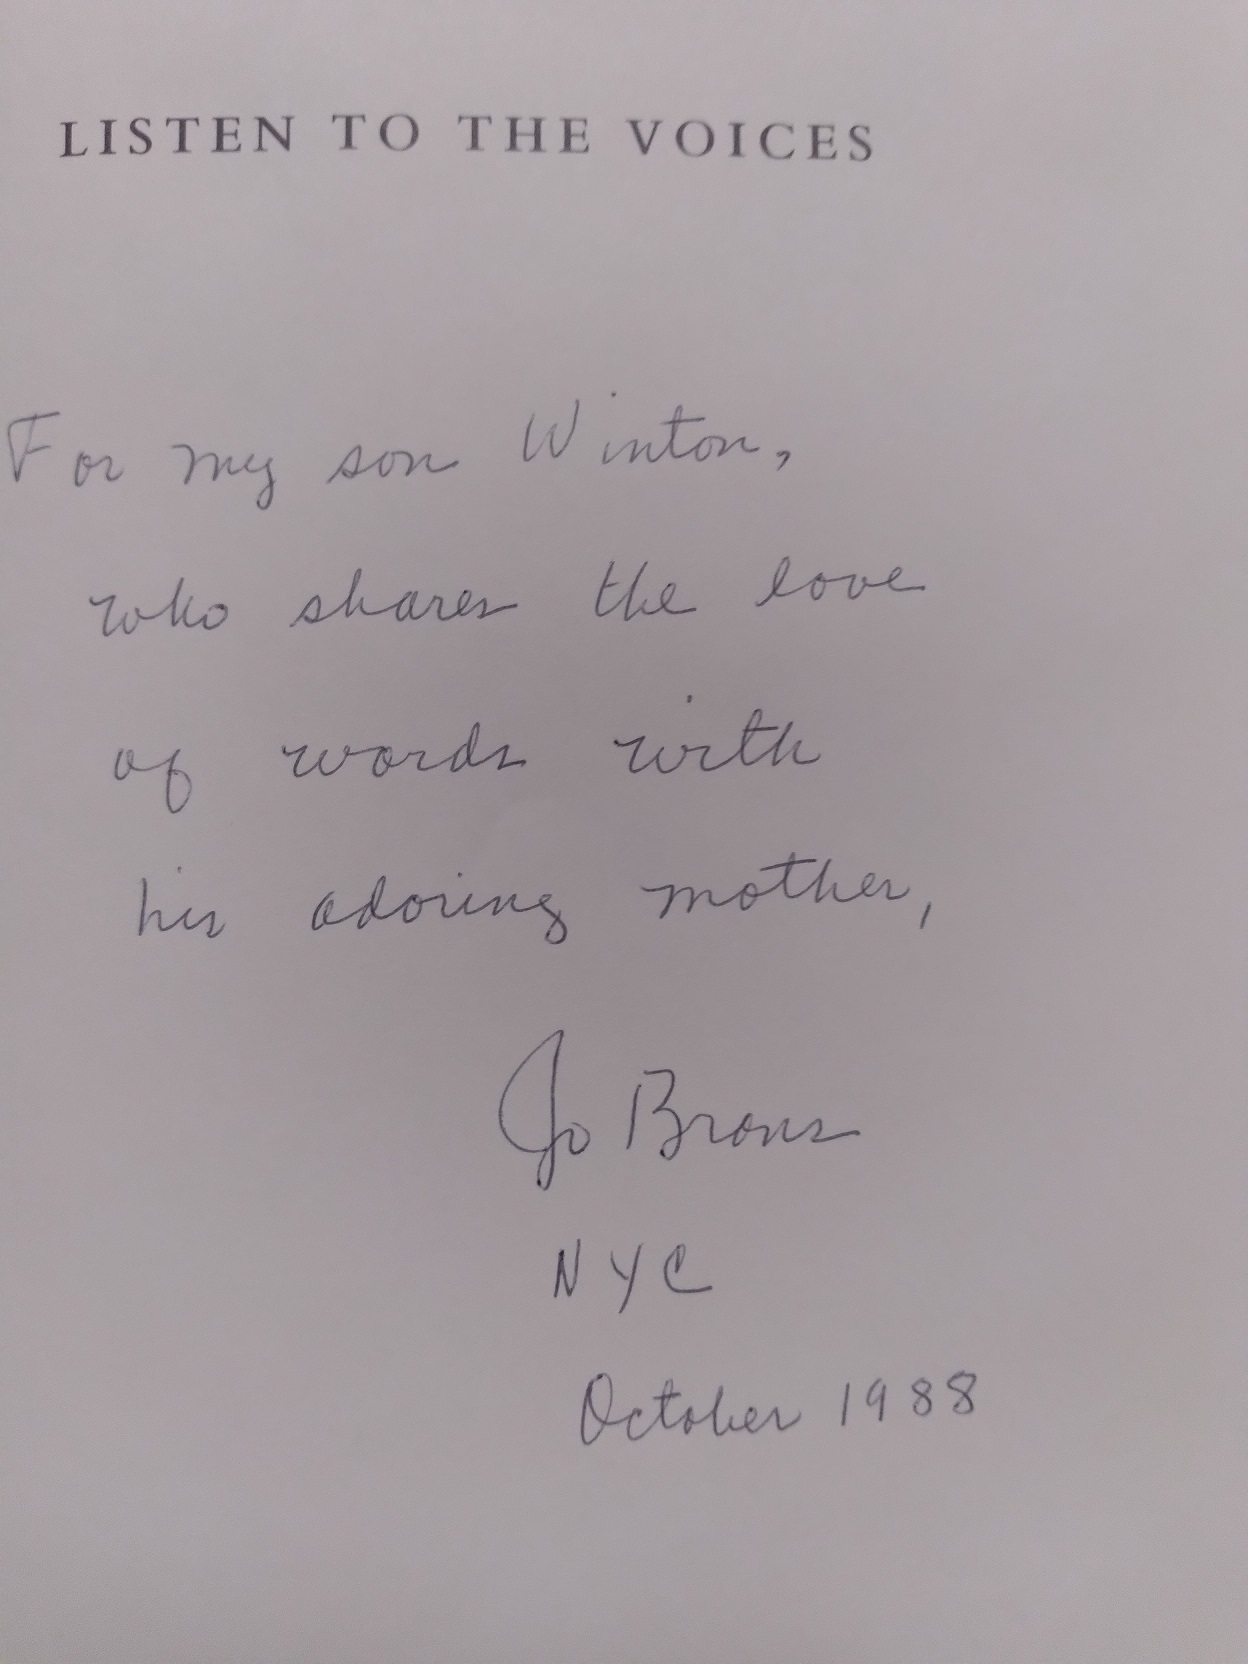 LISTEN TO THE VOICES
For my son Winton,
who shares the love
of words with
his adoring mother,
Jo Brans
NYC
October 1988